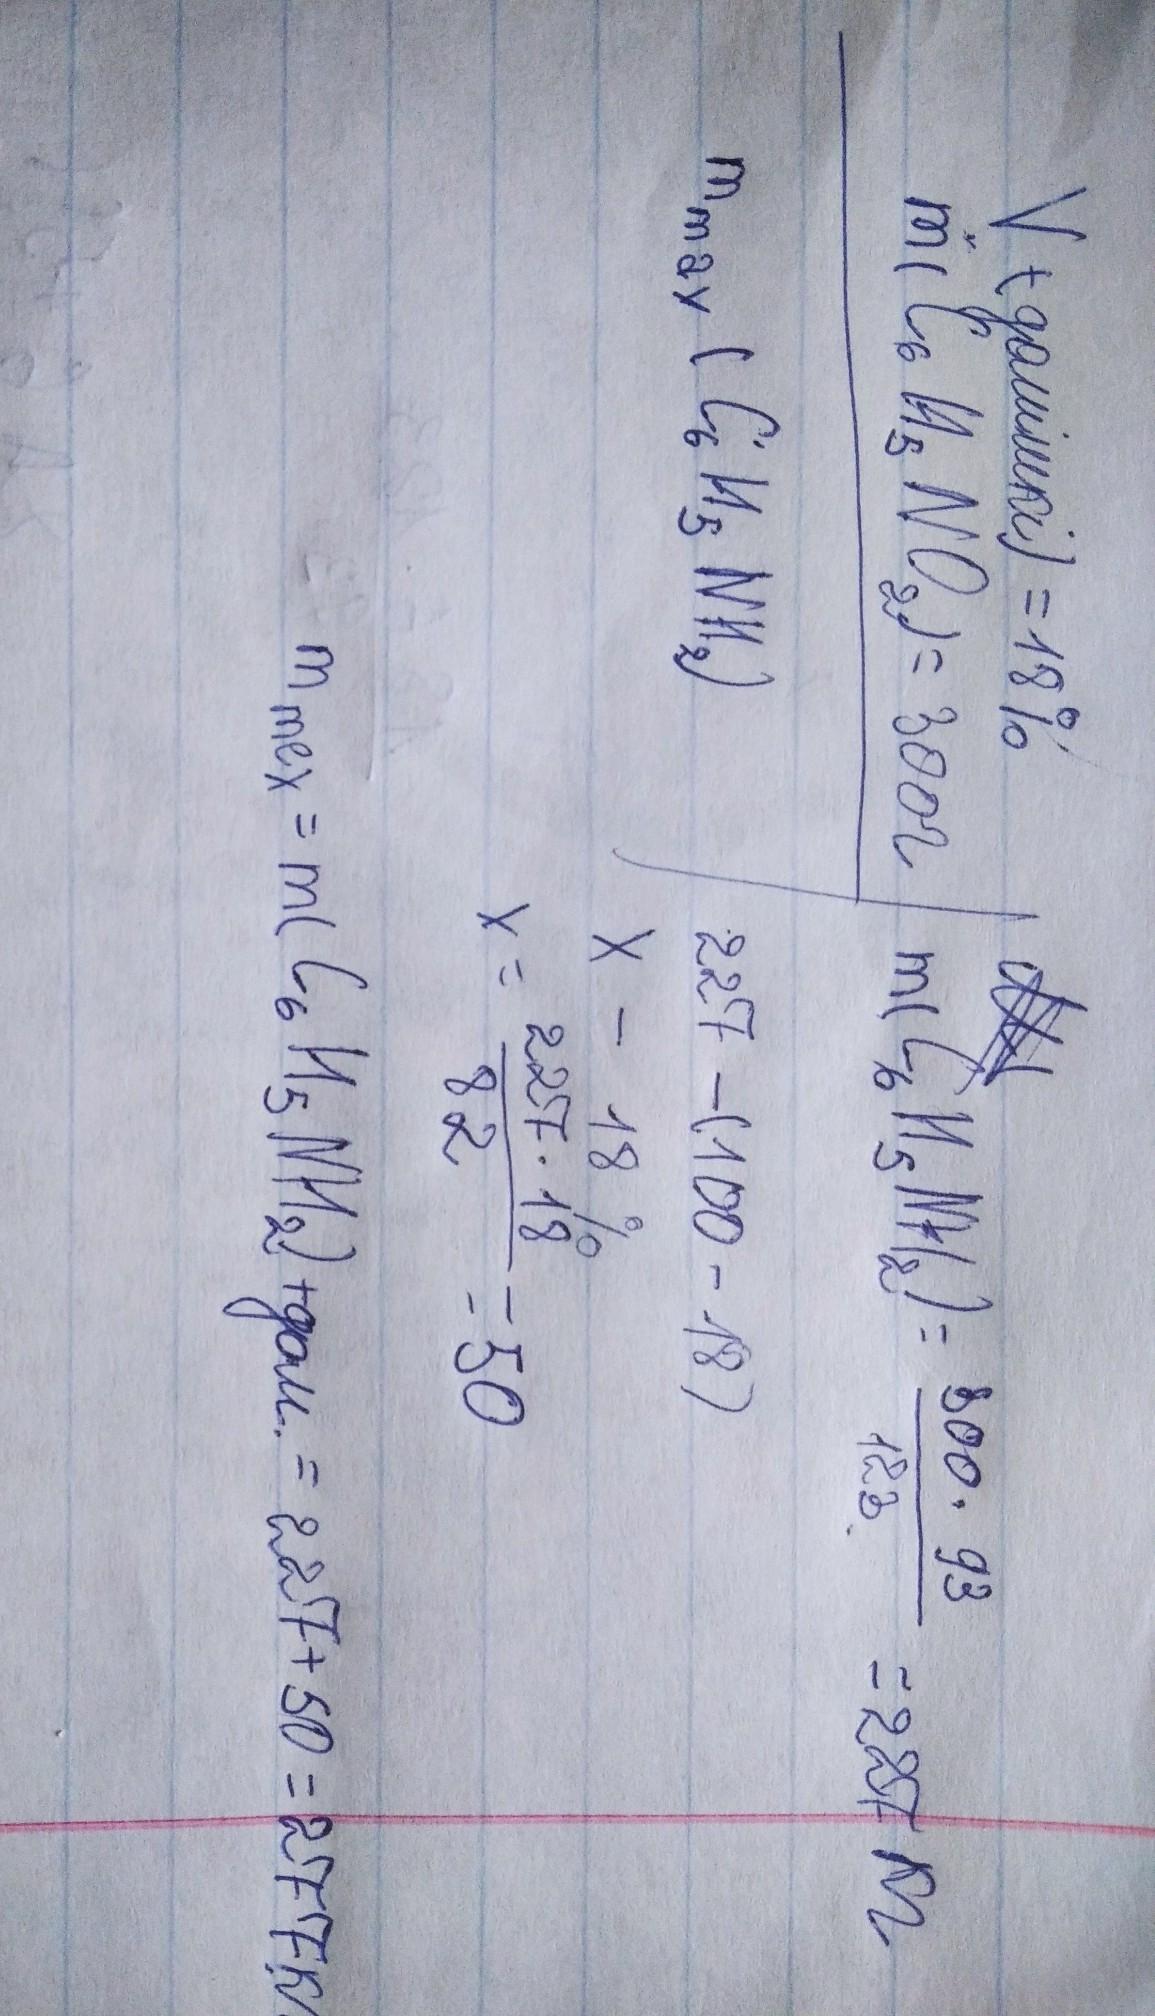 V (домішки) = 18%
m (C₆H₅NO₂) = 300г
m max (C₆H₅NH₂)
m(C₆H₅NH₂) = 300 · 93 / 123 = 227 кг
227 – (100 – 18)
x – 18 %
x = 227 · 18 / 82 = 50
m mex = m(C₆H₅NH₂) + дом. = 227 + 50 = 277 кг